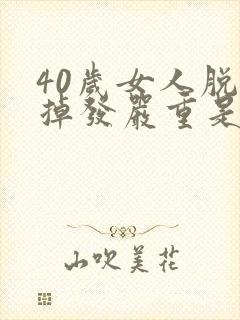 40歲女人脫
掉發嚴重是
山吹美花